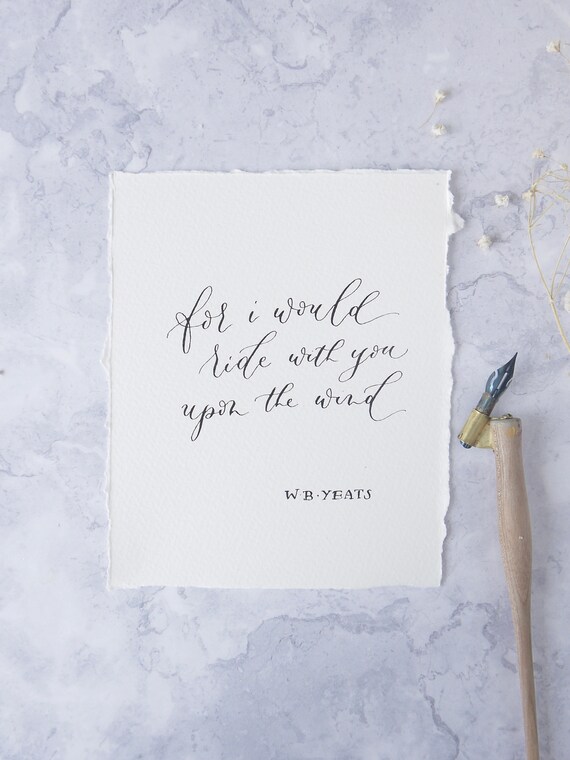 for i would
ride with you
upon the wind
W·B·YEATS